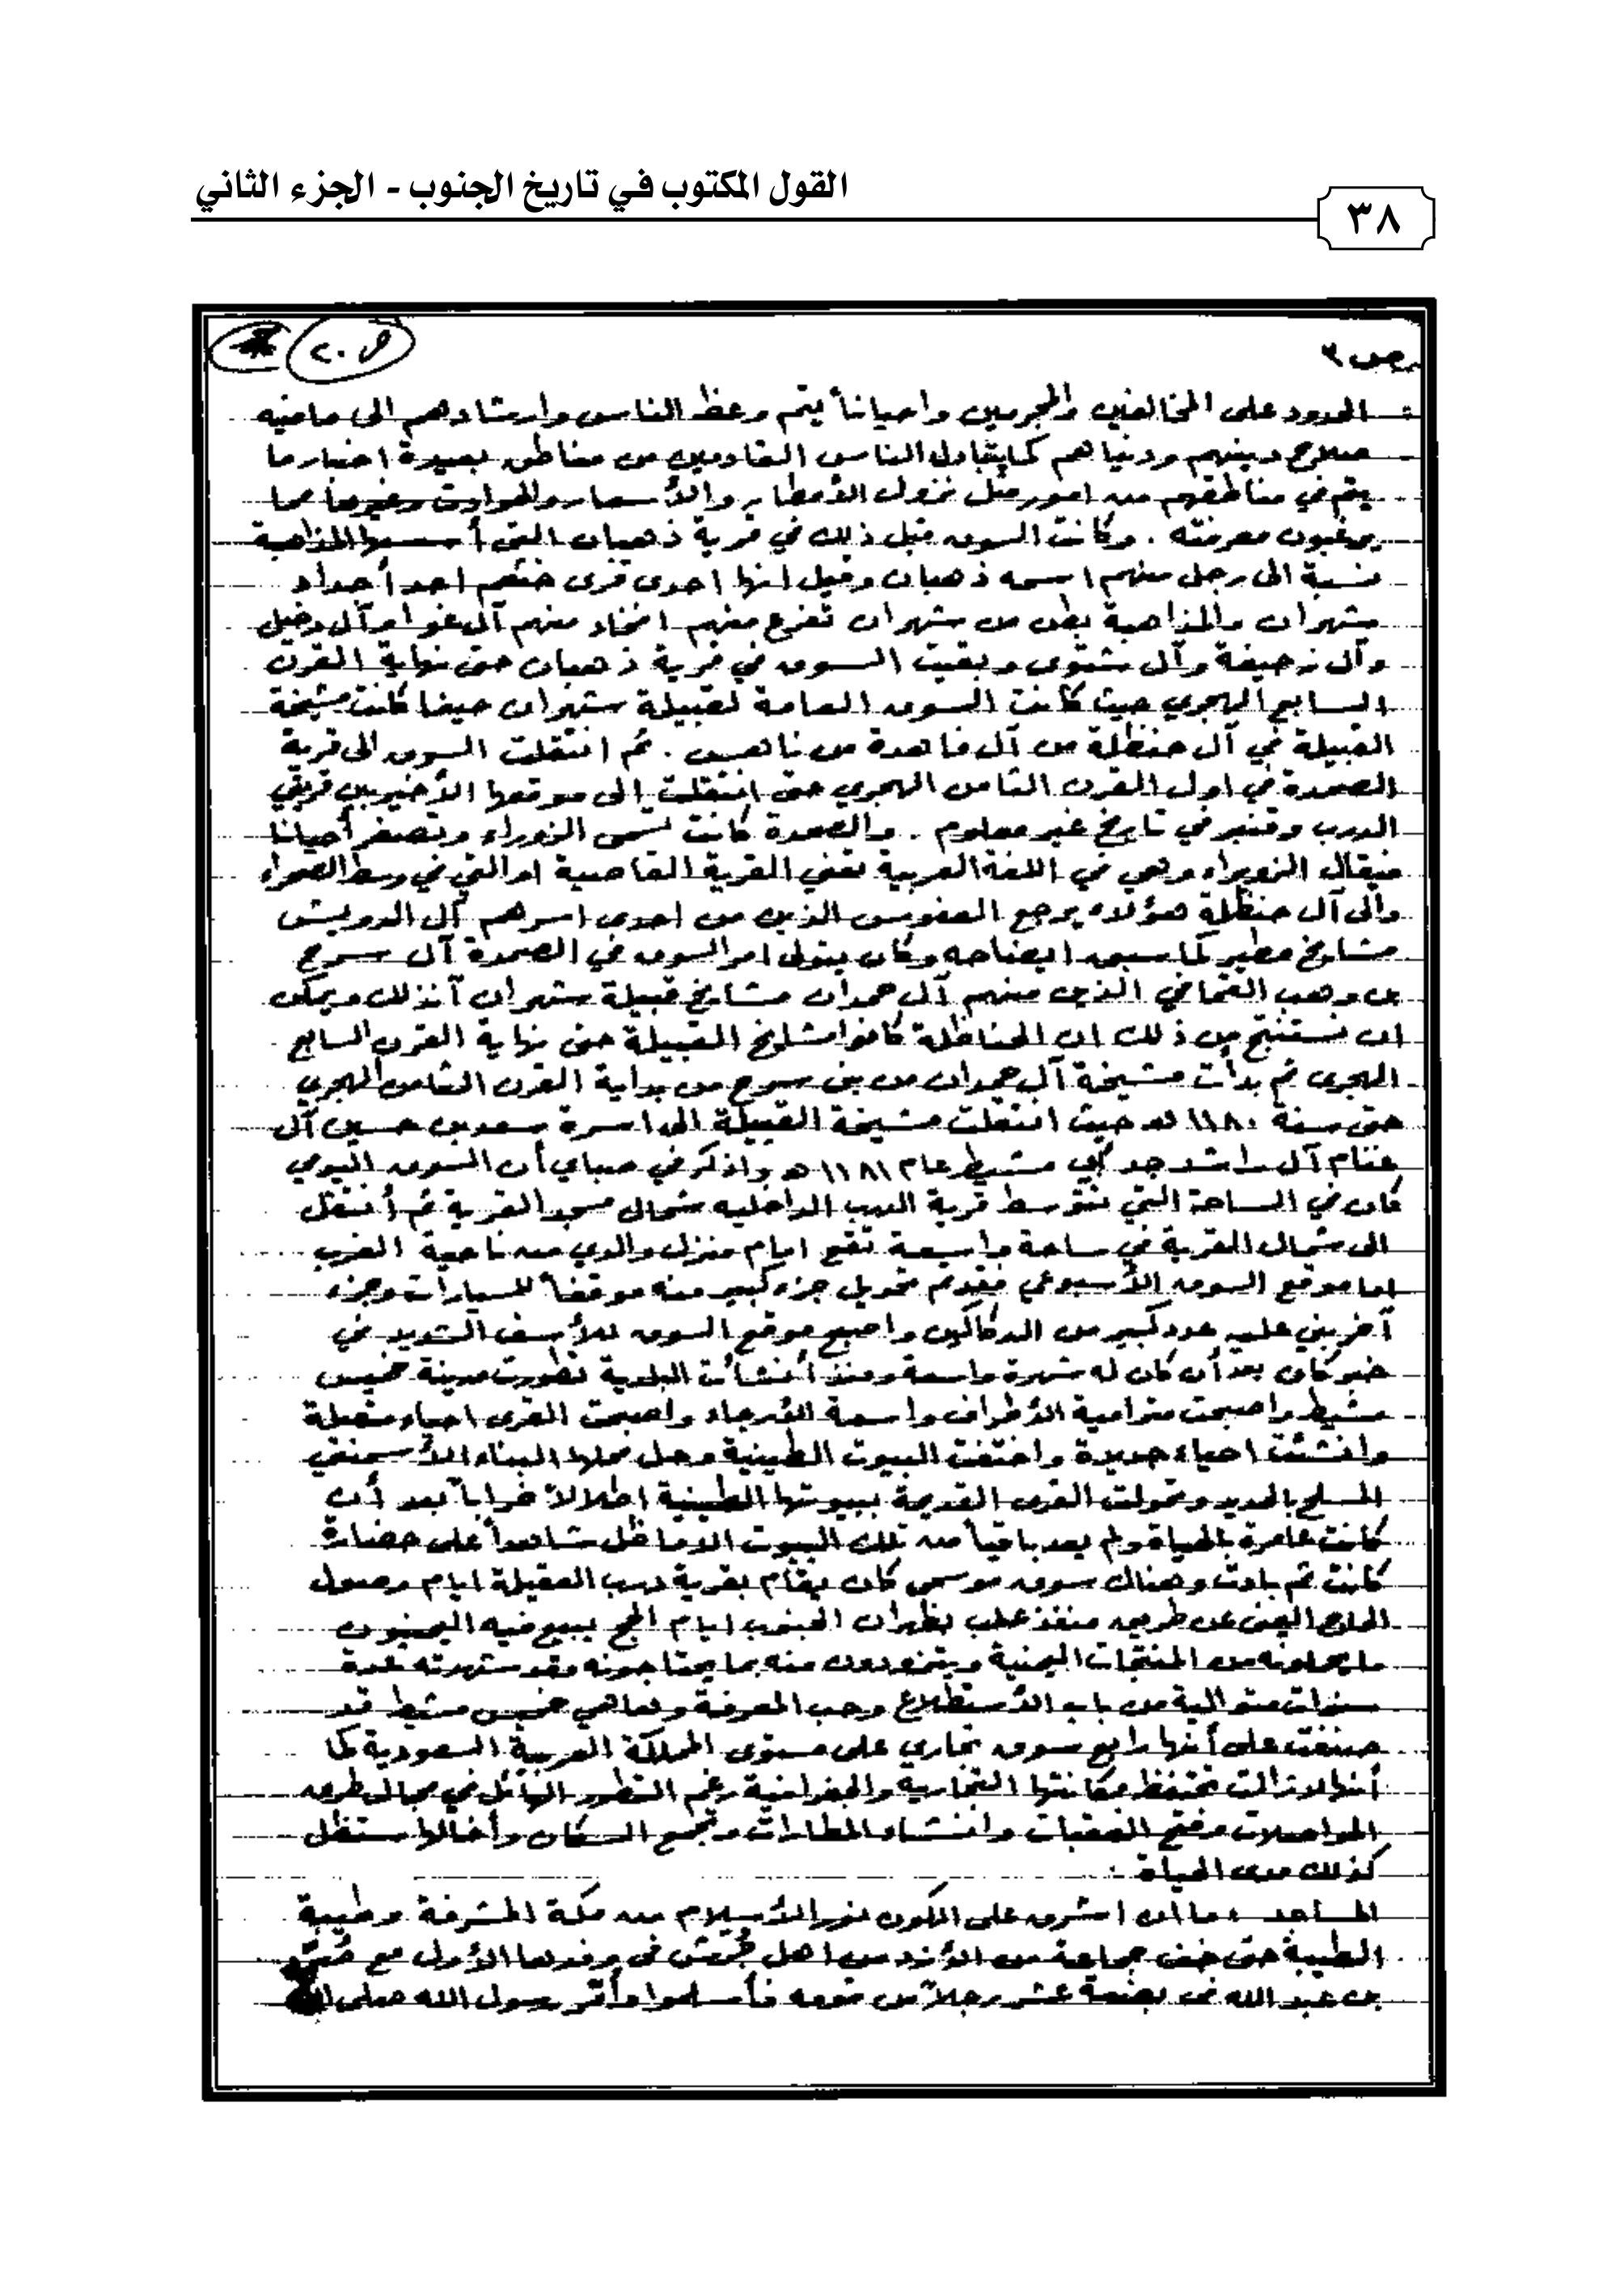 القول المكتوب في تاريخ الجنوب - الجزء الثاني
٣٨
ص ٢٠
ص ٣
الحدود على المخالفين والمجرمين واحياناً يتم وعظ الناس وارشادهم الى مافيه
صلاح دينهم ودنياهم كما يتبادل الناس القادمين من مناطق بعيدة اخبار ما
يتم في مناطقهم من امور مثل نزول الأمطار والأسعار والحوادث وغيرها مما
يرغبون معرفته . وكانت السوق قبل ذلك في قرية ذهبان التي أسسها المذاهبة
نسبة الى رجل منهم اسمه ذهبان وقيل انها احدى قرى خثعم احد أجداد
شهران والمذاهبة بطن من شهران تفرع منهم افخاذ منهم آل عوامر وآل دخيل
وآل زحيفة وآل شتوى وبقيت السوق في قرية ذهبان حتى نهاية القرن
السابع الهجري حيث كانت السوق العامة لقبيلة شهران حينما كانت مشيخة
القبيلة في آل حنظلة من آل فاهدة من ناهس . ثم انتقلت السوق الى قرية
الصمدة في اول القرن الثامن الهجري حتى انتقلت إلى موقعها الأخير بين قريتي
الدرب وقنبر في تاريخ غير معلوم . والصمدة كانت تسمى الزوراء وتصغر أحيانا
فيقال الزويراء وهي في اللغة العربية تعني القرية القاصية او التي في وسط الصحراء
والى آل حنظلة هؤلاء يرجع العفوس الذين من احدى اسرهم آل الدويش
مشايخ مطير كما سبق ايضاحه وكان يتولى امر السوق في الصمدة آل سرح
بن وهب القحافي الذين منهم آل حمدان مشايخ قبيلة شهران آنذلك ويمكن
ان نستنتج من ذلك ان الحناظلة كانوا مشايخ القبيلة حتى نهاية القرن السابع
الهجرى ثم بدأت مشيخة آل حمدان من بني سرح من بداية القرن الثامن الهجري
حتى سنة ١١٨٠ هـ حيث انتقلت مشيخة القبيلة الى اسرة سعد بن حسين آل
غنام آل راشد جد ابي مشيط عام ١١٨١ هـ واذكر في صباي أن السوق اليومي
كان في الساحة التي تتوسط قرية الدرب الداخليه شمال مسجد القرية ثم أنتقل
الى شمال القرية في ساحة واسعة تقع امام منزل والدي من ناحية الغرب
اما موقع السوق الأسبوعي فقد تم تحويل جزء كبير منه موقفاً للسيارات وجزء
آخر بني عليه عدد كبير من الدكاكين واصبح موقع السوق للأسف الشديد في
خبر كان بعد أن كان له شهرة واسعة ومنذ أنشأت البلدية تطورت مدينة خميس
مشيط واصبحت مترامية الأطراف واسعة الأرجاء واصبحت القرى احياء متصلة
وانشئت احياء جديدة واختفت البيوت الطينية وحل محلها البناء الأسمنتي
المسلح بالحديد وتحولت القرى القديمة ببيوتها الطينية اطلالاً خراباً بعد أن
كانت عامرة بالحياة ولم يعد باقياً من تلك البيوت الا ما ظل شاهداً على حضارة
كانت ثم بادت وهناك سوق موسمي كان يقام بقرية درب العقيلة ايام وصول
الحاج اليمني عن طريق منفذ علب بظهران الجنوب ايام الحج يبيع فيه اليمنيون
ما يحملونه من المنتجات اليمنية ويتزودون منه بما يحتاجونه وقد شهدته عدة
سنوات متوالية من باب الأستطلاع وحب المعرفة وها هي خميس مشيط قد
صنفت على أنها رابع سوق تجاري على مستوى المملكة العربية السعودية كما
أنها لا زالت تحتفظ بمكانتها التجاريه والجغرافية رغم التطور الهائل في مجال طرق
المواصلات وفتح العقبات وانشاء المطارات وتجمع السكان وأخالها ستظل
كذلك مدى الحياة .
المساجد : ما ان اشرق على الكون نور الأسلام من مكة المشرفة وطيبة
الطيبة حتى خف جماعة من الأزد من اهل جُرَش في وفدها الأول مع صُرَد
بن عبد الله في بضعة عشر رجلاً من قومه فأسلموا وأمَّر رسول الله صلى الله